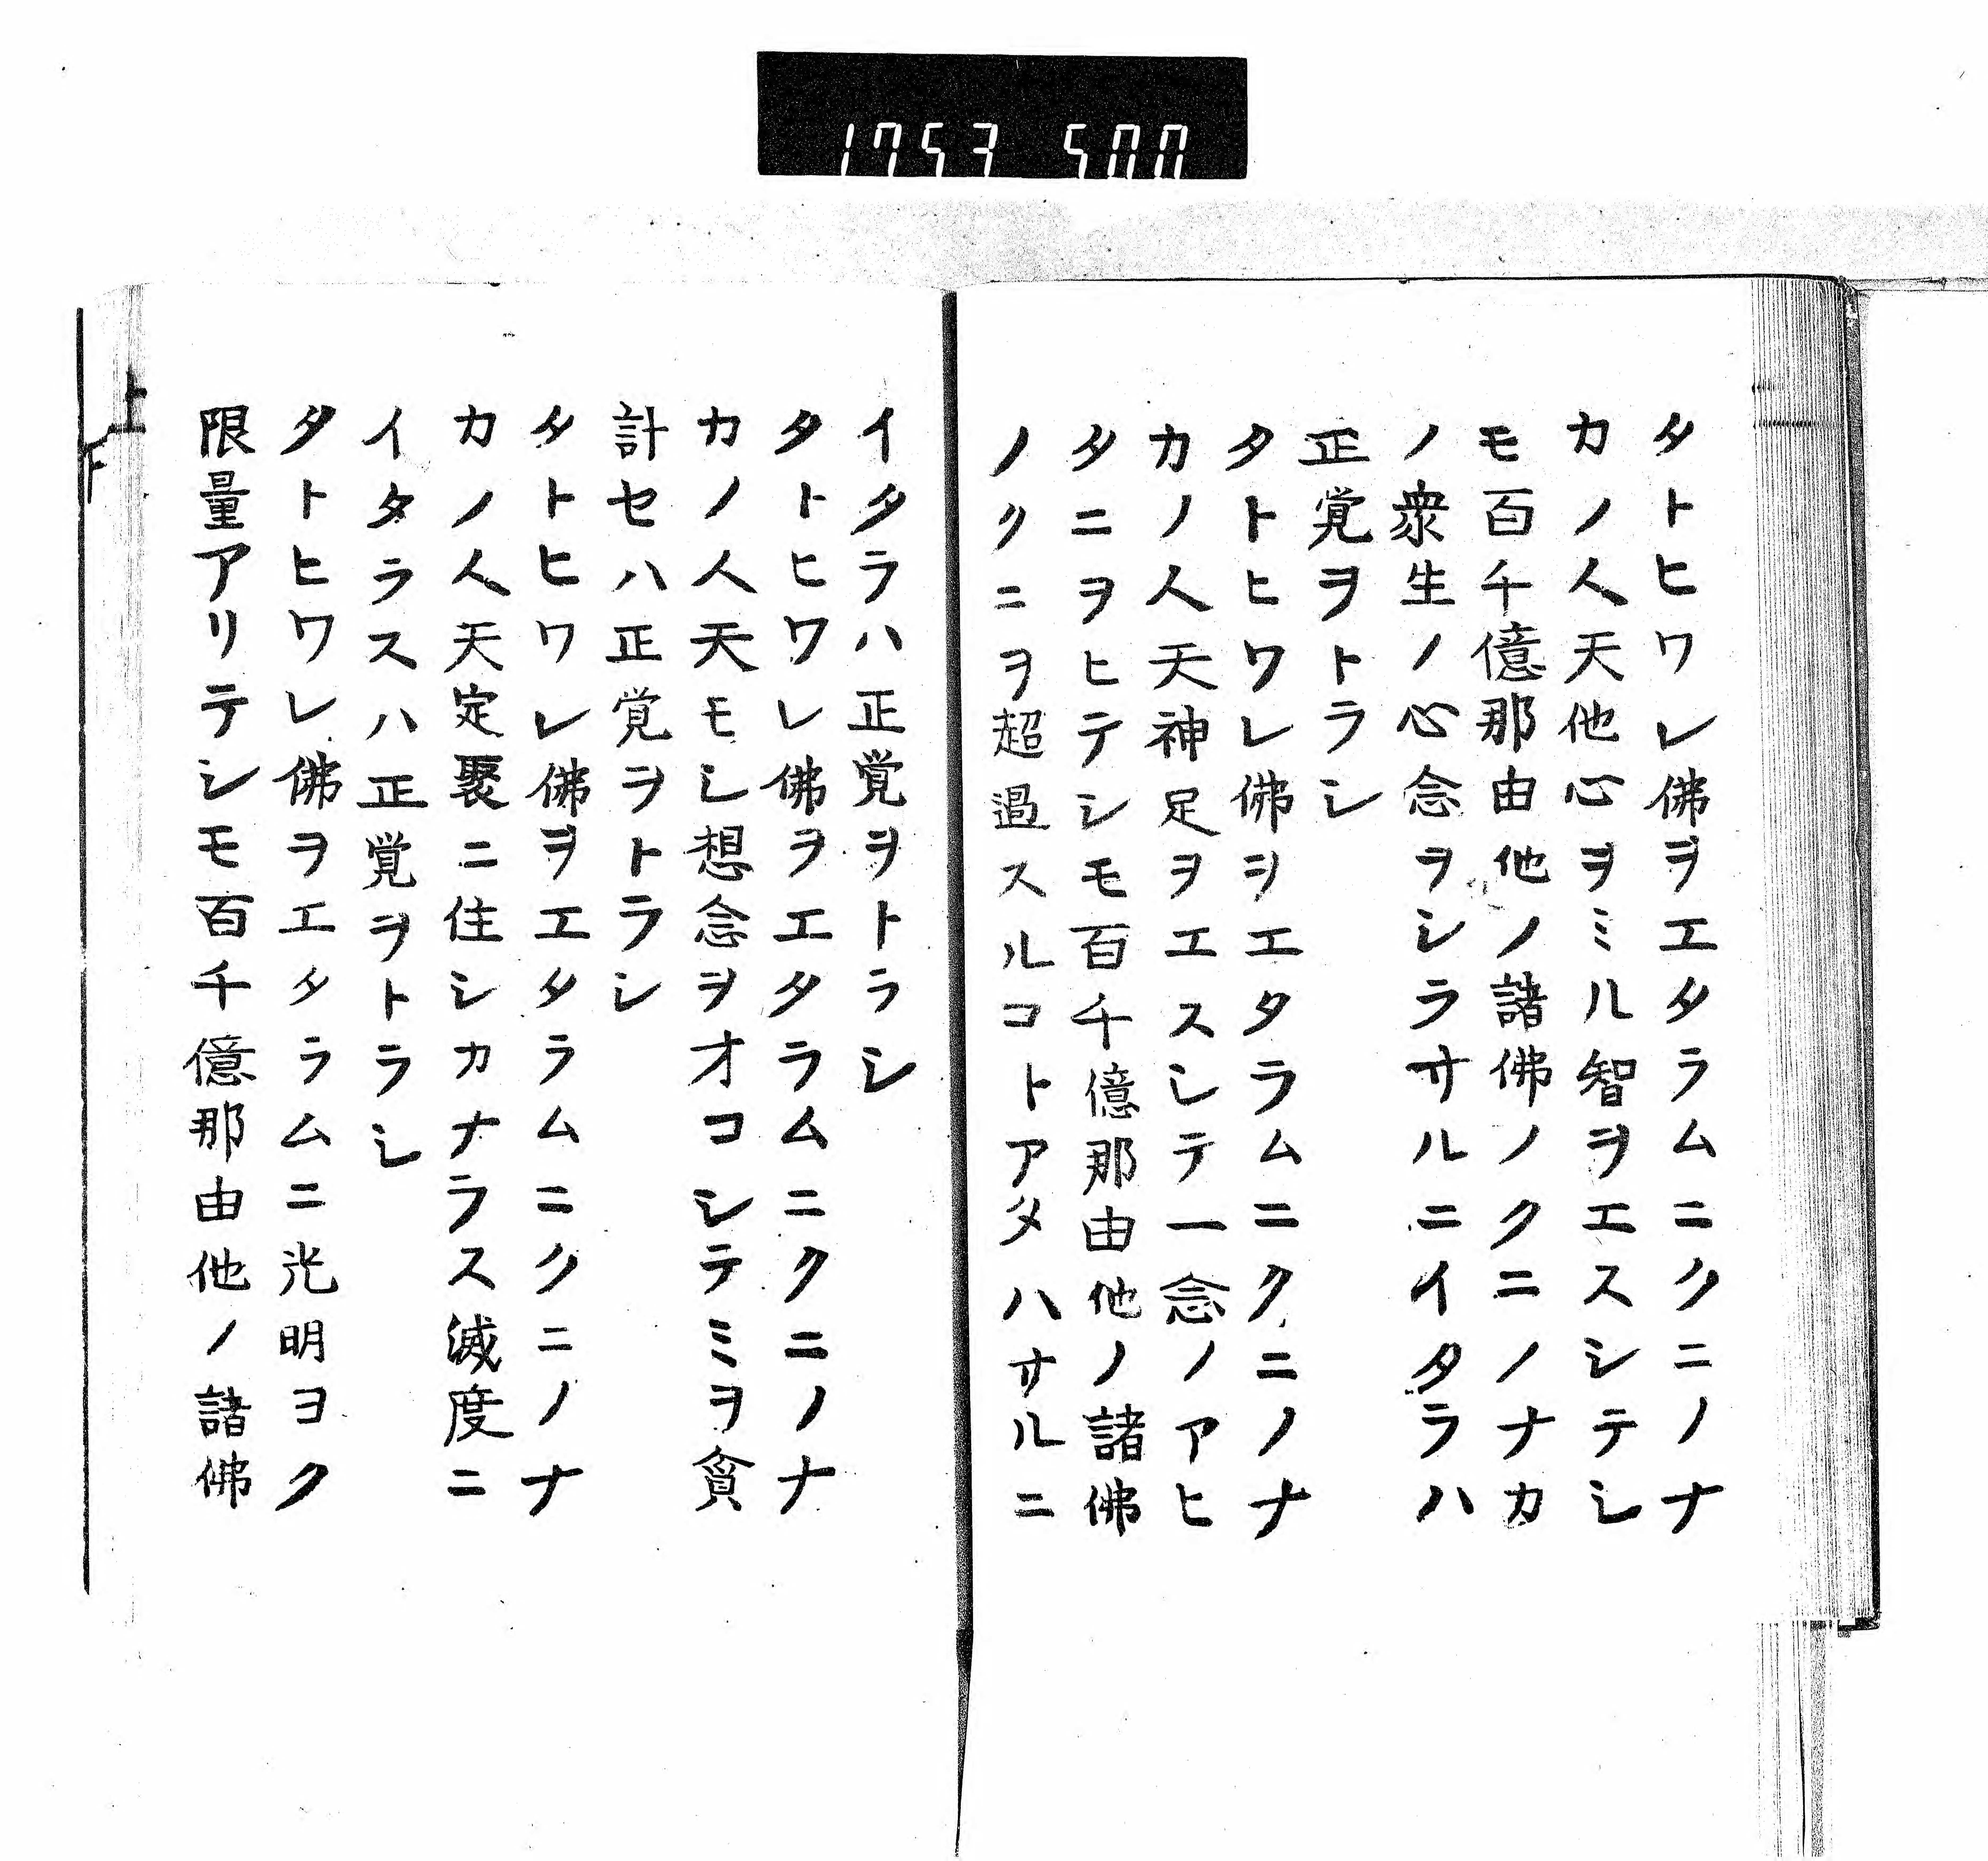 1753 500
タトヒワレ佛ヲエタラムニクニノナ
カノ人天他心ヲミル智ヲエスシテシ
モ百千億那由他ノ諸佛ノクニノナカ
ノ衆生ノ心念ヲシラサルニイタラハ
正覚ヲトラシ
タトヒワレ佛ヲエタラムニクニノナ
カノ人天神足ヲエスシテ一念ノアヒ
タニヲヒテシモ百千億那由他ノ諸佛
ノクニヲ超過スルコトアタハサルニ
イタラハ正覚ヲトラシ
タトヒワレ佛ヲエタラムニクニノナ
カノ人天モシ想念ヲオコシテミヲ貪
計セハ正覚ヲトラシ
タトヒワレ佛ヲエタラムニクニノナ
カノ人天定聚ニ住シカナラス滅度ニ
イタラスハ正覚ヲトラシ
タトヒワレ佛ヲエタラムニ光明ヨク
限量アリテシモ百千億那由他ノ諸佛
上
下